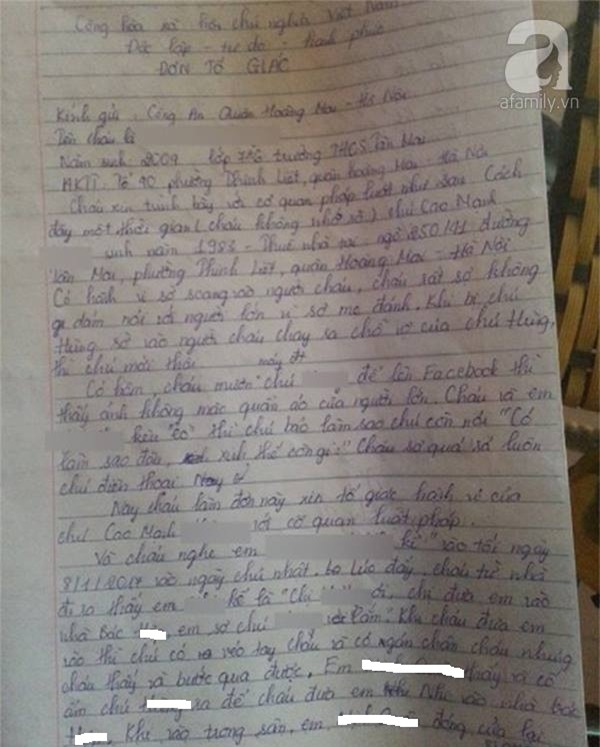 Cộng hòa xã hội chủ nghĩa Việt Nam
Độc lập - tự do - hạnh phúc
ĐƠN TỐ GIÁC
a
afamily.vn
Kính gửi : Công An Quận Hoàng Mai - Hà Nội
Tên cháu là
Năm sinh 2004, lớp 7A6 trường THCS Tân Mai
HKTT: Tổ 90 phường Thịnh Liệt, quận hoàng Mai - Hà Nội
Cháu xin trình bày với cơ quan pháp luật như sau Cách
đây một thời gian ( cháu không nhớ rõ ) chú Cao Mạnh
sinh năm 1983 - Thuê nhà tại - ngõ 250 đường
Tân Mai, phường Thịnh Liệt, quận Hoàng Mai - Hà Nội
Có hành vi sờ soạng vào người cháu, cháu rất sợ không
dám nói với người lớn vì sợ mẹ đánh. Khi bị chú
Hùng sờ vào người cháu chạy ra chỗ vợ của chú Hùng,
thì chú mới thôi.
máy đt
Có hôm cháu mượn chú để lên Facebook thì
thấy ảnh không mặc quần áo của người lớn. Cháu và em
kêu "eo" thì chú bảo làm sao chú còn nói "Có
làm sao đâu, xinh thế còn gì" Cháu sợ quá trả luôn
chú điện thoại
Nay cháu làm đơn này xin tố giác hành vi của
chú Cao Mạnh với cơ quan luật pháp.
Và cháu nghe em kể vào tối ngày
8/1/2017 vào ngày chủ nhật. Lúc đấy, cháu từ nhà
đi ra thấy em kể là "Chị ơi, chị đưa em vào
nhà bác em sợ chú lắm." Khi cháu đưa em
vào thì chú có kéo tay cháu và có ngăn chặn cháu nhưng
cháu thấy và bước qua được. Em thấy và cố
ẩn chú ra để cháu đưa em vào nhà bác
Khi vào trong sân, em đóng cửa lại